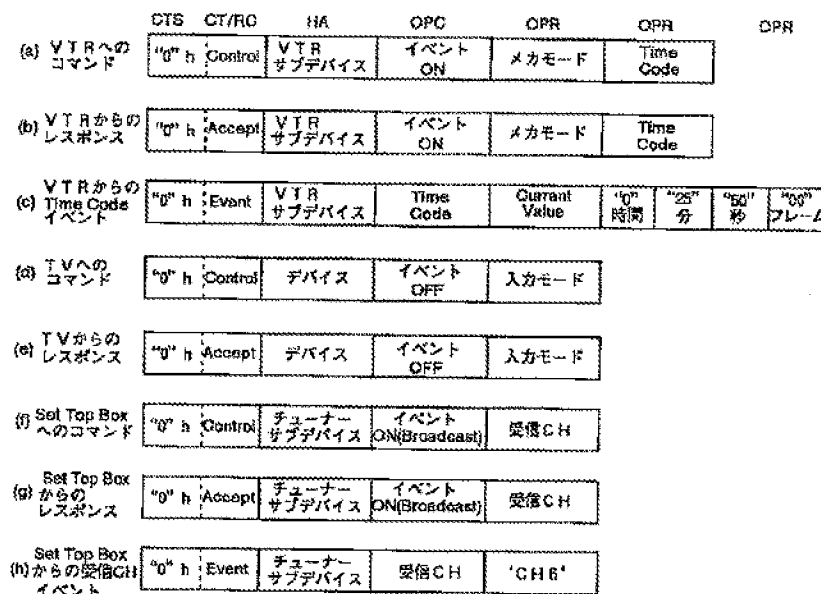 CTS CT/RC HA OPC OPR OPR OPR
(a) VTRへの
コマンド
"0" h Control VTR
サブデバイス イベント
ON メカモード Time
Code
(b) VTRからの
レスポンス
"0" h Accept VTR
サブデバイス イベント
ON メカモード Time
Code
(c) VTRからの
Time Code
イベント
"0" h Event VTR
サブデバイス Time
Code Currant
Value "0"
時間 "25"
分 "50"
秒 "00"
フレーム
(d) TVへの
コマンド
"0" h Control デバイス イベント
OFF 入力モード
(e) TVからの
レスポンス
"0" h Accept デバイス イベント
OFF 入力モード
(f) Set Top Box
へのコマンド
"0" h Control チューナー
サブデバイス イベント
ON(Broadcast) 受信CH
(g) Set Top Box
からの
レスポンス
"0" h Accept チューナー
サブデバイス イベント
ON(Broadcast) 受信CH
(h) Set Top Box
からの受信CH
イベント
"0" h Event チューナー
サブデバイス 受信CH 'CH6'